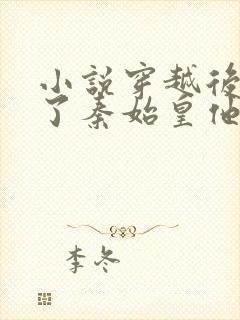 小説穿越後
了秦始皇他
李冬